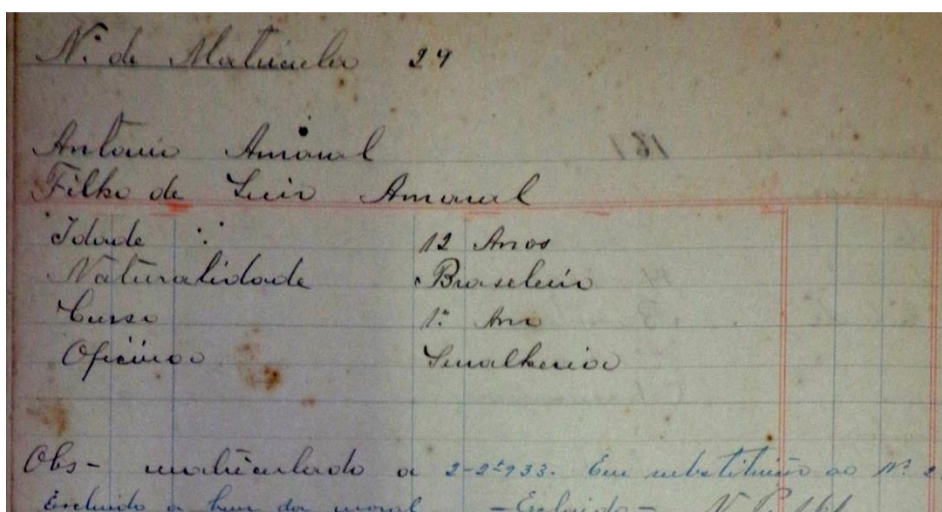 Nº de Matricula 24
Antonio Amaral
Filho de Luiz Amaral
Idade : 12 Anos
Naturalidade Brasileiro
Curso 1º Ano
Oficina Serralheria
Obs - matriculado a 2-2-933. Em substituição ao Nº 2
Excluido a bem da moral - Excluido -